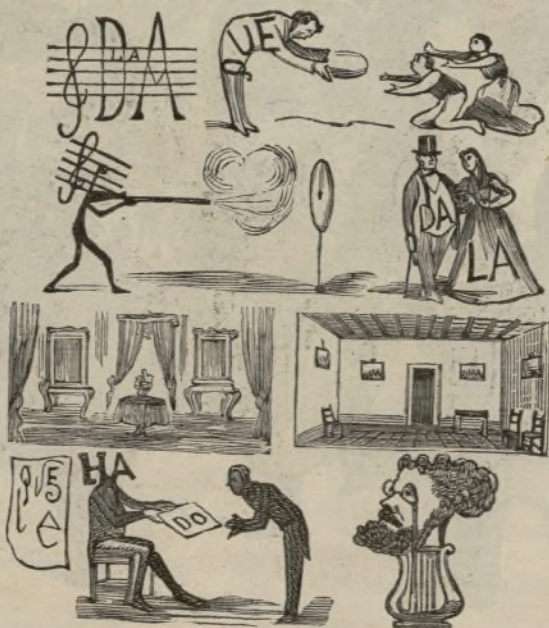 DA
LA
QUE
DA
LA
QUE
e
HA
DO